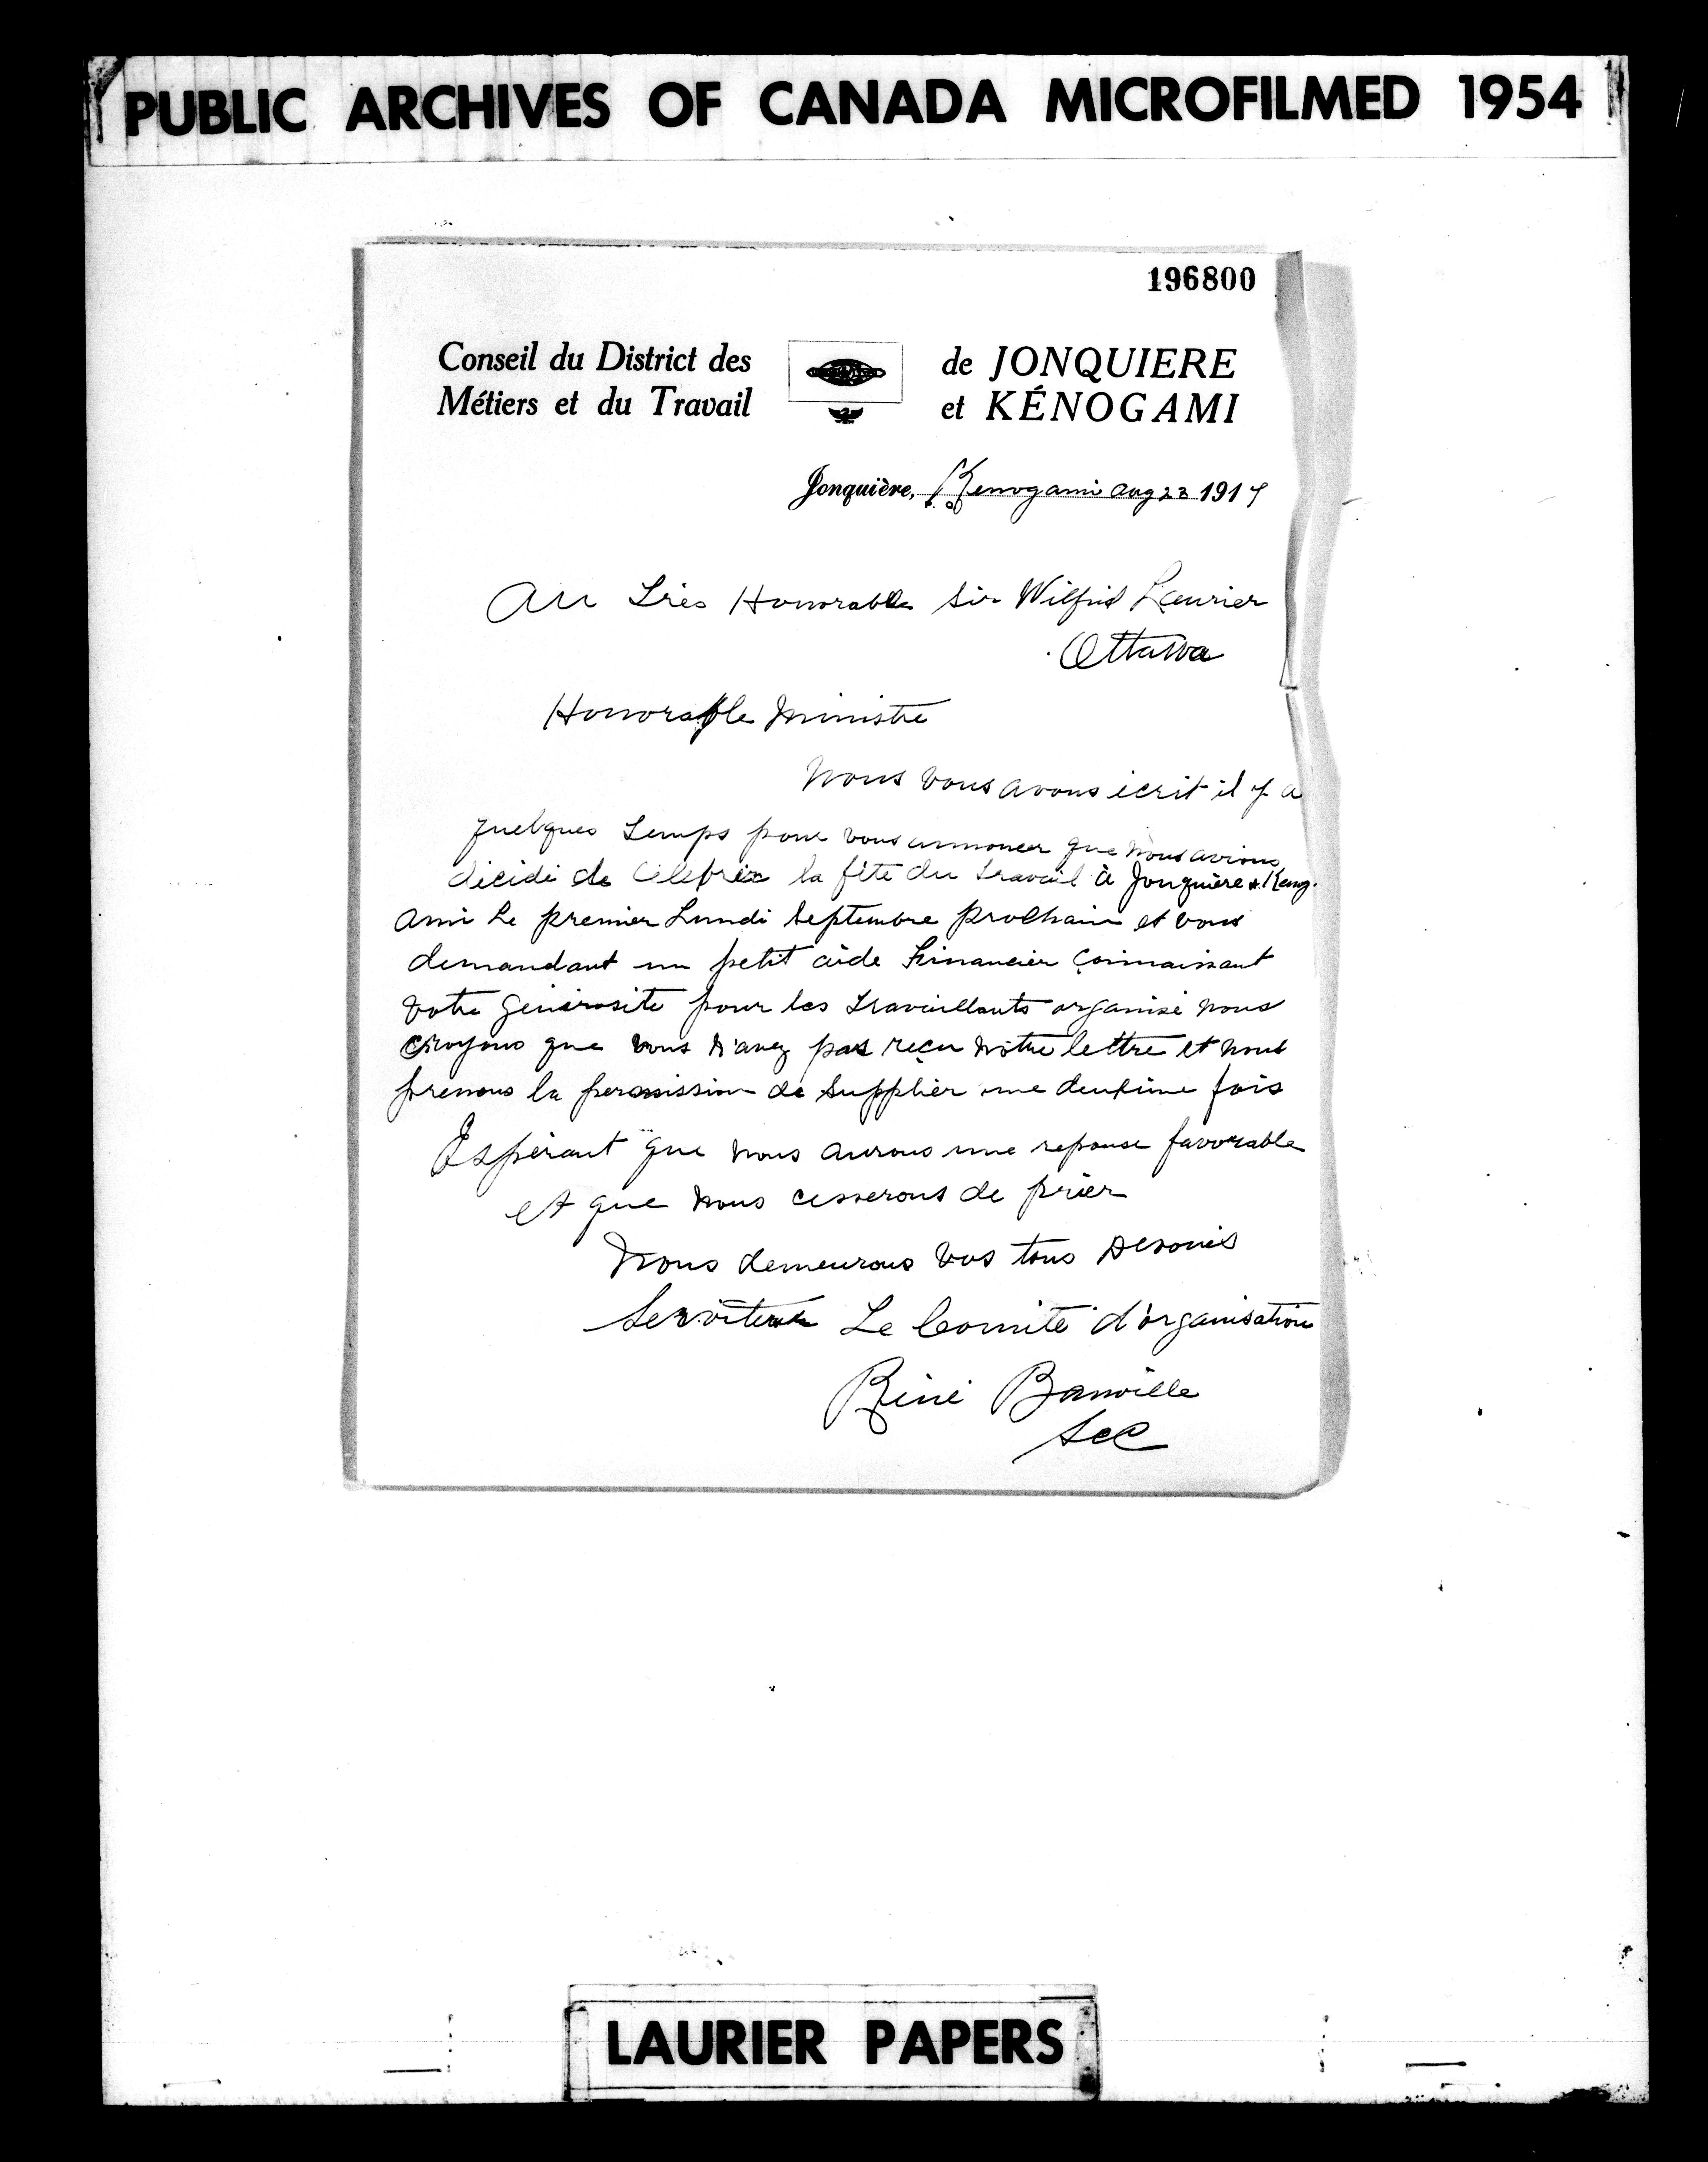 PUBLIC ARCHIVES OF CANADA MICROFILMED 1954
196800
Conseil du District des
Métiers et du Travail
de JONQUIERE
et KÉNOGAMI
Jonquière, Kenogami Aug 23 1917
Au Très Honorable Sir Wilfrid Laurier
Ottawa
Honorable Ministre
Nous vous avons écrit il y a
quelques temps pour vous annoncer que nous avions
décidé de célébrer la fête du travail à Jonquière & Keng.
ami le premier Lundi Septembre prochain et vous
demandant un petit aide Financier Connaissant
votre générosité pour les travaillants organisé nous
croyons que vous n'avez pas reçu notre lettre et nous
prenons la permission de supplier une deuxime fois
Espérant que nous aurons une reponse favorable
et que nous cesserons de prier
Nous demeurons vos tous devoués
Serviteurs Le Comité d'organisation
Réné Banville
Sec
LAURIER PAPERS